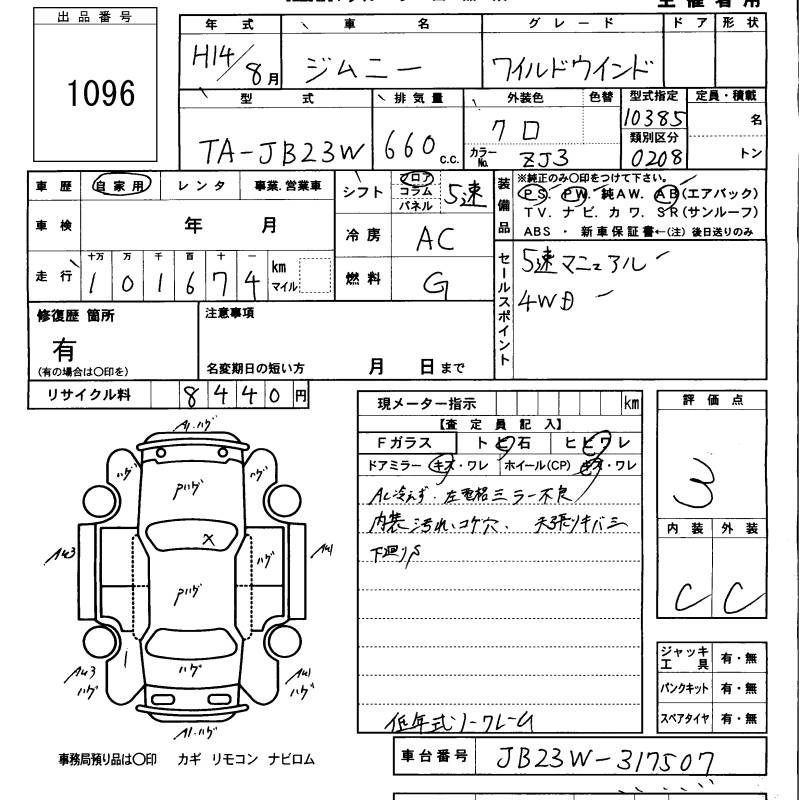 出品番号
1096
年式 車名 グレード ドア 形状
H14/8月 ジムニー ワイルドウインド
型式 排気量 外装色 色替 型式指定 定員・積載
TA-JB23W 660c.c. クロ 10385 名
カラーNo. ZJ3 類別区分 0208 トン
車歴 自家用 レンタ 事業.営業車
車検 年 月
走行 十万 万 千 百 十 一
1 0 1 6 7 4 km マイル
シフト フロア コラム パネル 5速
冷房 AC
燃料 G
装備品 ※純正のみ〇印をつけて下さい。
PS. PW. 純AW. AB(エアバック)
TV. ナビ. カワ. SR(サンルーフ)
ABS ・ 新車保証書←(注) 後日送りのみ
セールスポイント
5速マニュアル
4WD
修復歴 箇所
有
(有の場合は〇印を)
注意事項
名変期日の短い方 月 日まで
リサイクル料 8440円
現メーター指示 km
【査定員記入】
Fガラス トビ石 ヒビワレ
ドアミラー キズ・ワレ ホイール(CP) キズ・ワレ
AC冷えず. 左電格ミラー不良
内装 汚れ、コゲ穴、 天張りキバミ
下廻りS
低年式ノークレーム
評価点
3
内装 外装
C C
ジャッキ工具 有・無
パンクキット 有・無
スペアタイヤ 有・無
A1.ハゲ
ハゲ
ハゲ
Pハゲ
X
AU3
AU1
ハゲ
Pハゲ
AU3
ハゲ
ハゲ
AU1
ハゲ
A1.ハゲ
事務局預り品は〇印 カギ リモコン ナビロム
車台番号 JB23W-317507